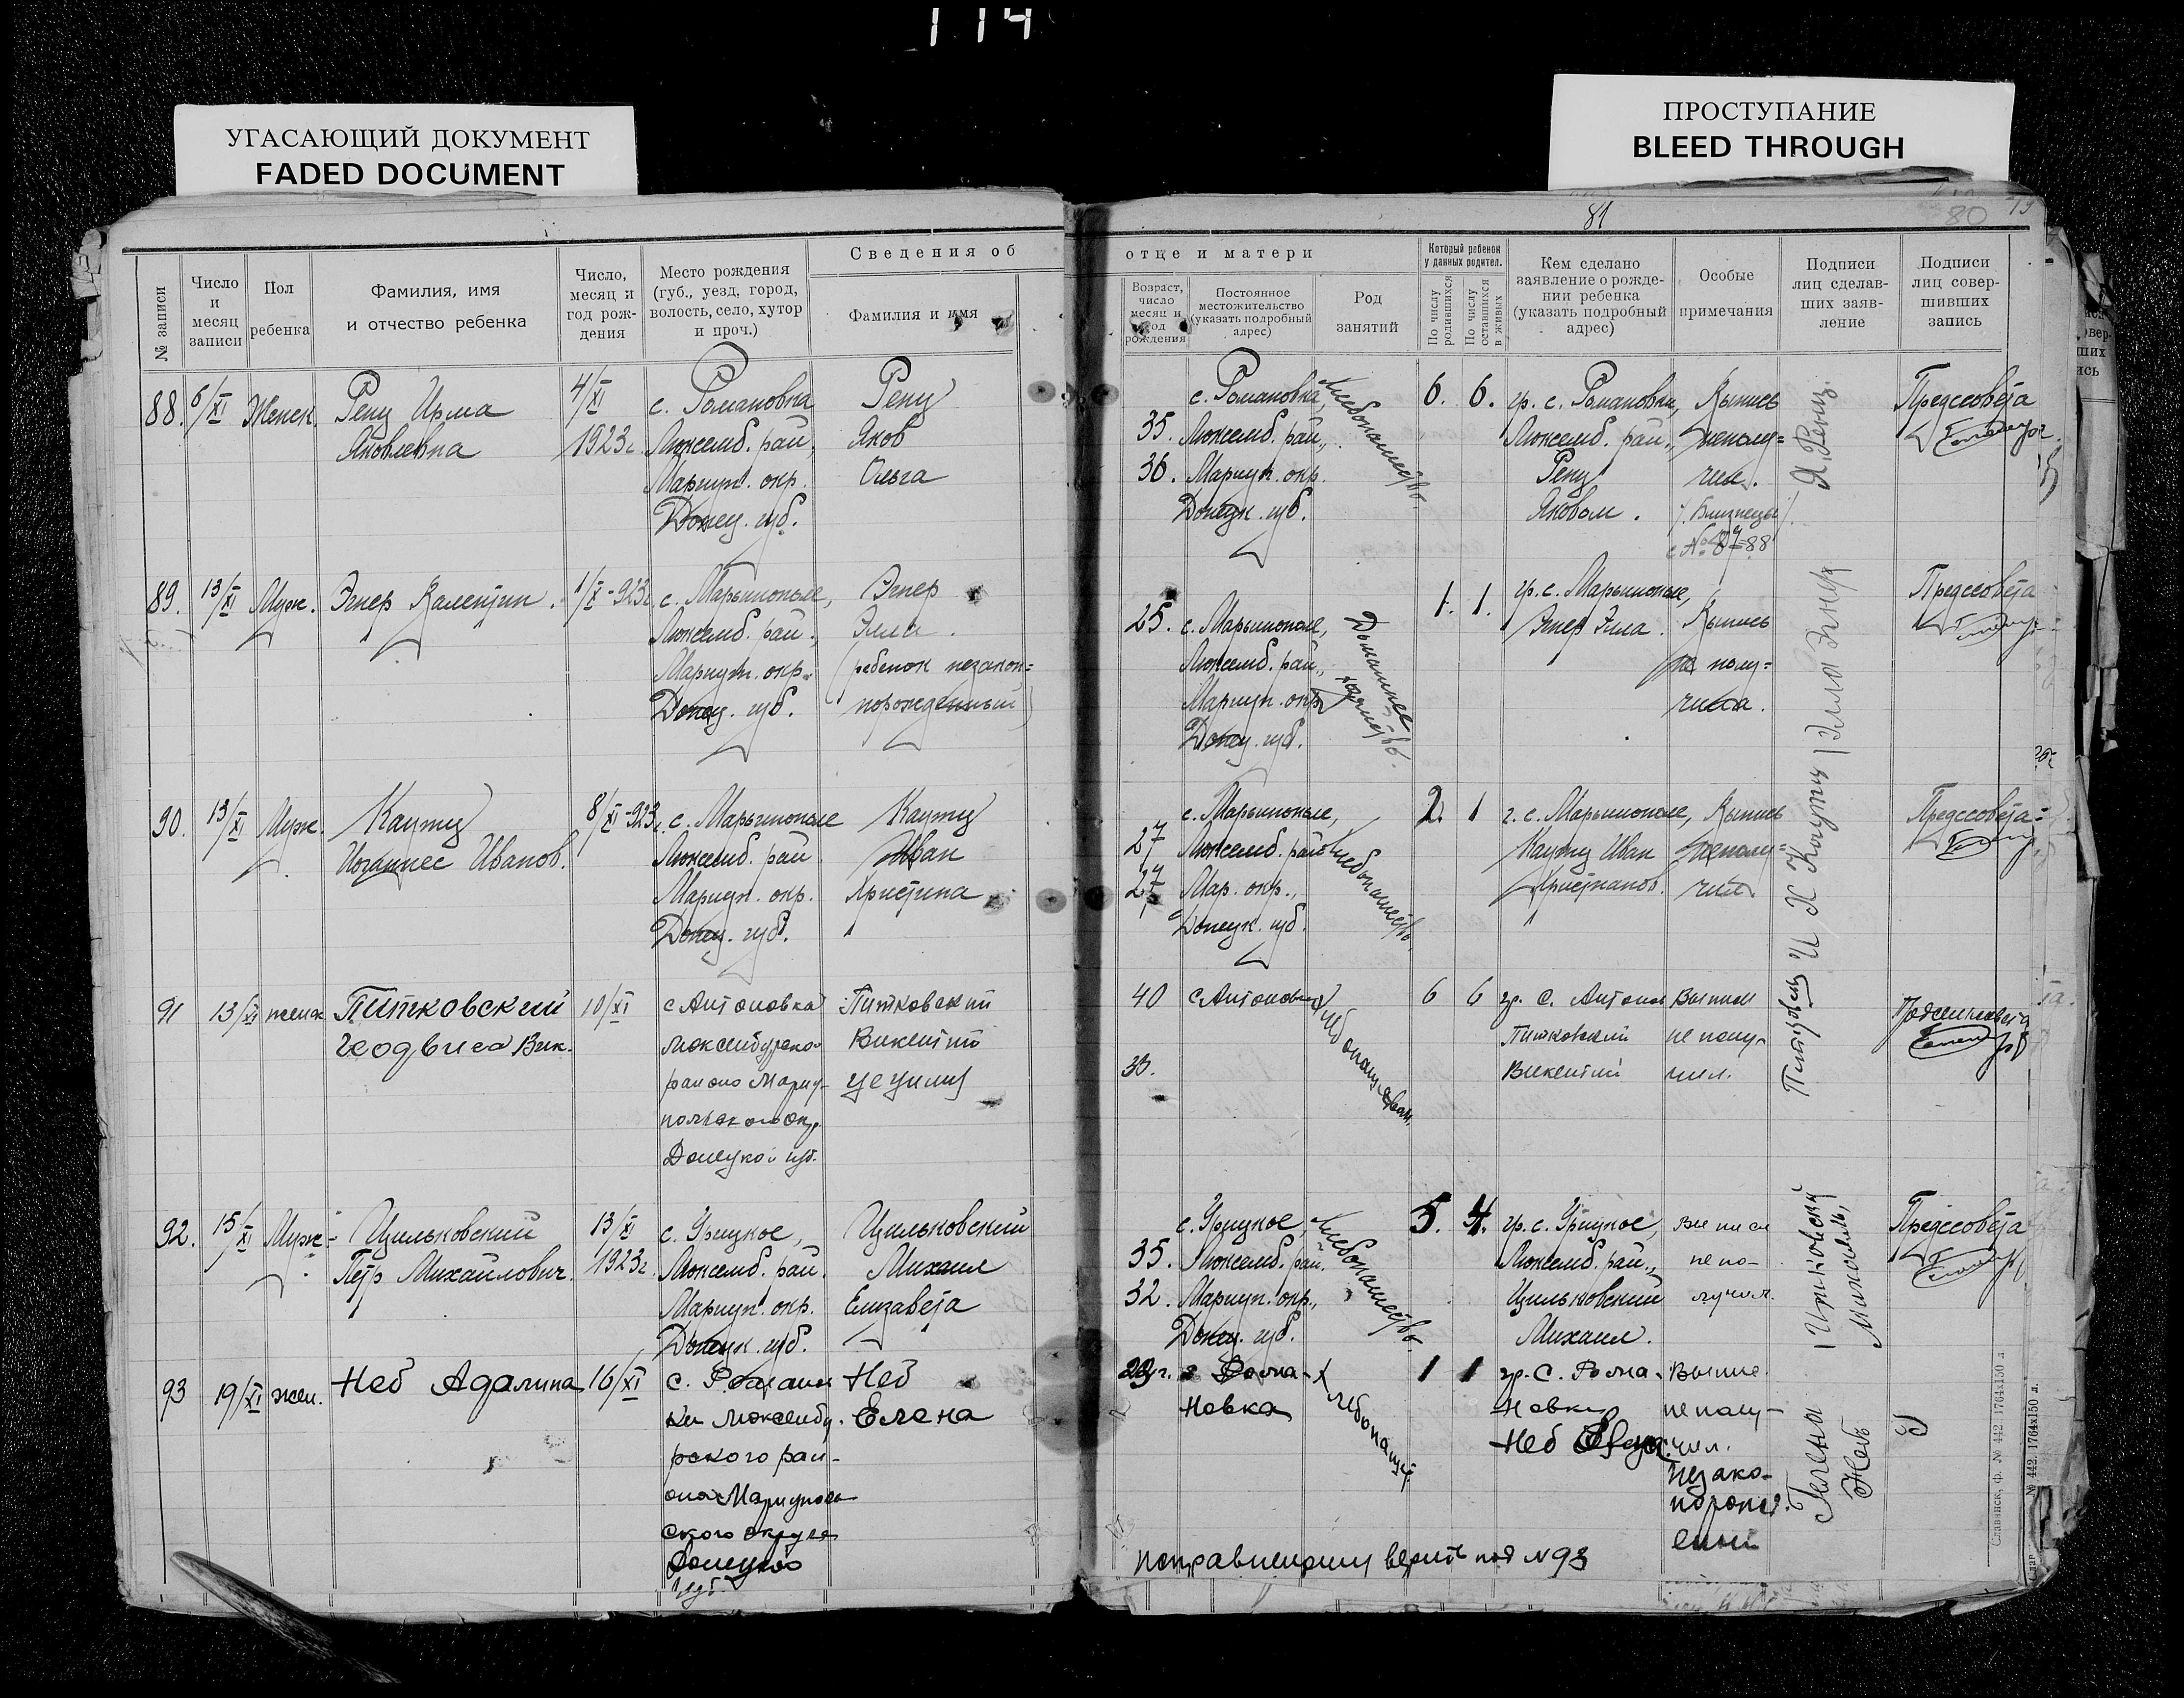 114
УГАСАЮЩИЙ ДОКУМЕНТ
FADED DOCUMENT
ПРОСТУПАНИЕ
BLEED THROUGH
81
80
№ записи
Число и месяц записи
Пол ребенка
Фамилия, имя и отчество ребенка
Число, месяц и год рождения
Место рождения (губ., уезд, город, волость, село, хутор и проч.)
Сведения об отце и матери
Фамилия и имя
Возраст, число месяц и год рождения
Постоянное местожительство (указать подробный адрес)
Род занятий
Который ребенок у данных родител.
По числу родившихся
По числу оставшихся в живых
Кем сделано заявление о рождении ребенка (указать подробный адрес)
Особые примечания
Подписи лиц сделавших заявление
Подписи лиц совершивших запись
88. 6/XI Женск. Ренц Ирма
Яковлевна
4/XI
1923г.
с. Романовка
Люксемб. рай.
Мариуп. окр.
Донец. губ.
Ренц
Яков
Ольга
35.
36.
с. Романовка,
Люксемб. рай.,
Мариуп. окр.
Донецк. губ.
Хлебопашество.
6. 6.
гр. с. Романовки,
Люксемб. рай.,
Ренц
Яковом.
неполу=
чил.
/Близнецы/
с № 87=88
Я. Ренц.
Предсовета
89. 13/XI Муж. Эгнер Валентин. 1/X-923г.
с. Марьинополе,
Люксемб. рай.,
Мариуп. окр.
Донец. губ.
Эгнер
Элла.
(ребенок незакон=
норожденный)
25. с. Марьинополе,
Люксемб. рай.,
Мариуп. окр.
Донец. губ.
Домашнее
хозяйство.
1. 1.
гр. с. Марьинополе,
Эгнер Элла.
не полу=
чила.
Элла Эгнер
Предсовета
90. 13/XI Муж. Каутц
Иоганнес Иванов.
8/XI-923г.
с. Марьинополе
Люксемб. рай.
Мариуп. окр.
Донец. губ.
Каутц
Иван
Христина
27
27
с. Марьинополе,
Люксемб. рай.
Мар. окр.,
Донецк. губ.
Хлебопашество.
2. 1
г. с. Марьинополе,
Каутц Иван
Христианов.
неполу=
чил.
И Х Каутц
Предсовета=
91 13/XI женск Питковский
10/XI
с Антоновка
Донецкой губ.
Питковский
Викентий
40
30.
с Антоновка
6 6
гр. с. Антонов
Питковский
Викентий
Выписи
не полу-
чил.
92. 15/XI Муж- Цильковский
Пётр Михайлович.
13/XI
1923г.
с. Урицкое,
Люксемб. рай.
Мариуп. окр.
Донецк. губ.
Цильковский
Михаил
Елизавета
35.
32.
с. Урицкое,
Люксемб. рай.
Мариуп. окр.,
Донец. губ.
Хлебопашество.
5. 4.
гр. с. Урицкое,
Люксемб. рай.,
Цильковский
Михаил.
Выписи
не по-
лучил.
Предсовета
93 19/XI жен. Неб Адалина 16/XI
с. Романов
ки Люксембу-
рского рай-
она Мариуполь
ского округа
Донецкой
губ.
Неб
Елена
с Рома-
новка
1 1
гр. с. Рома-
новки
Неб
не полу-
чил.
незако-
норожд.
енный
Елена
Неб
исправленому верить под N 93
Славянск, ф. № 442 1764х150 л.
№ 442. 1764х150 л.